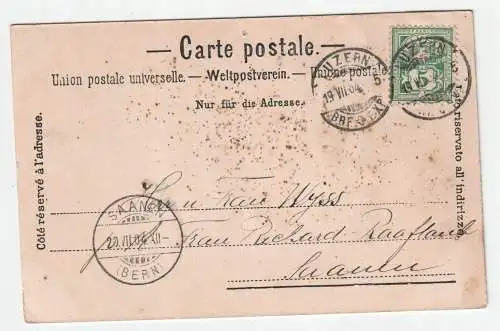 — Carte postale. —
Union postale universelle. — Weltpostverein. — Unione postale
Nur für die Adresse.
LUZERN
19.VII.04.
(BRF. EXP.
LUZERN
5
Côté réservé à l'adresse.
Lato riservato all'indirizzo.
SAANEN
20.VII.04.
(BERN)
Frau Wyss
Frau Richard-Raaflaub
Saanen